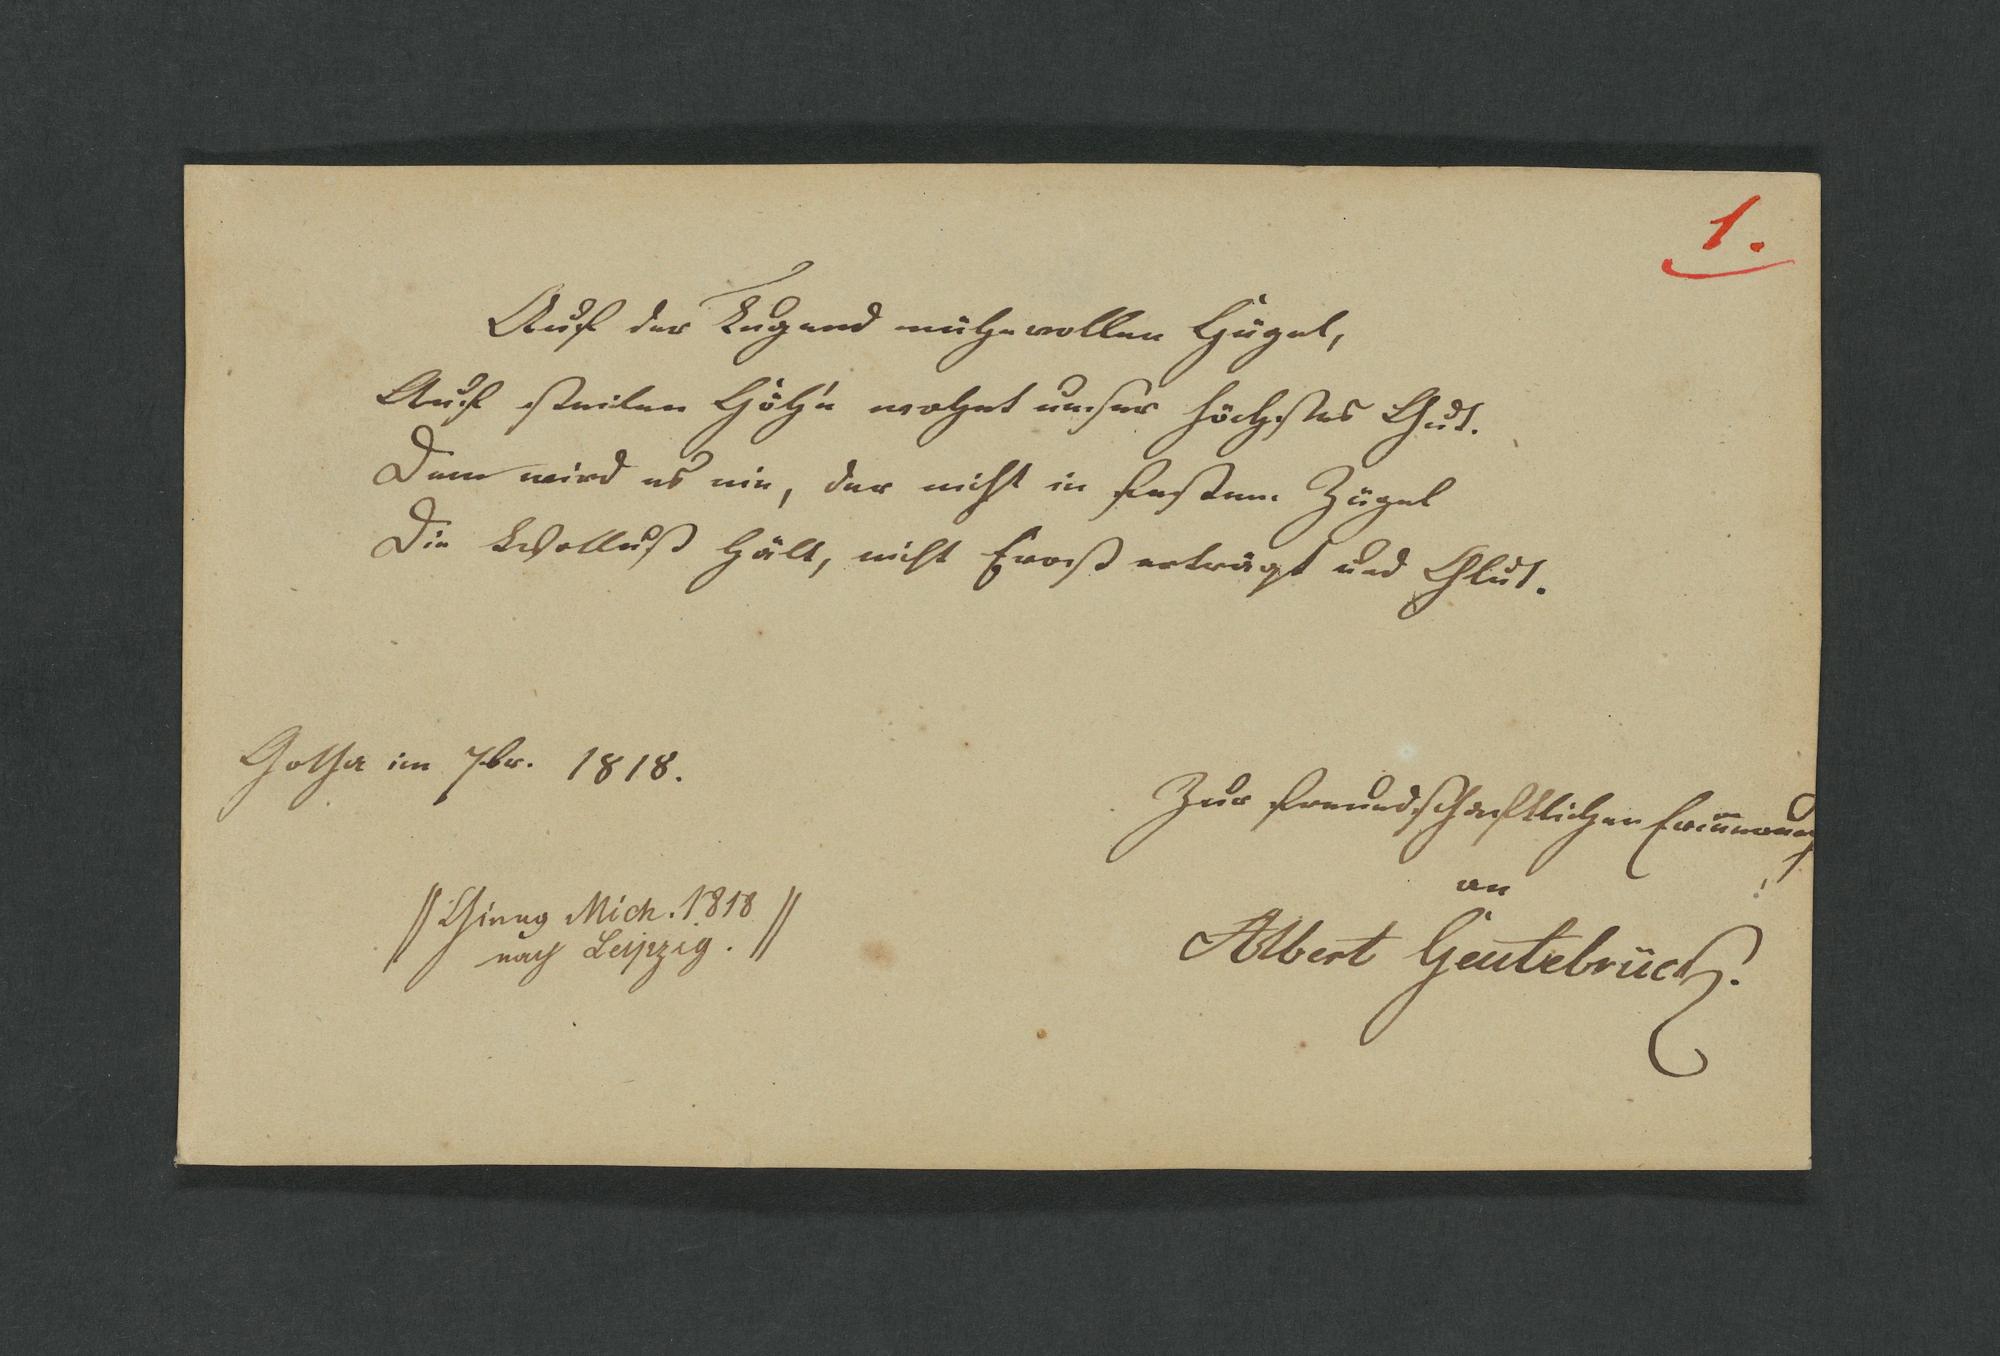 1.
Auf der Tugend mühevollen Hügel,
Auf steilen Höh'n wohnt unser höchstes Gut.
Dem wird es nie, der nicht in festem Zügel
Die Wollust hält, nicht Frost erträgt und Glut.
Gotha im 7br. 1818.
Zur freundschaftlichen Erin̄erung
an
Albert Geutebrück.
// Ging Mich. 1818
nach Leipzig. //